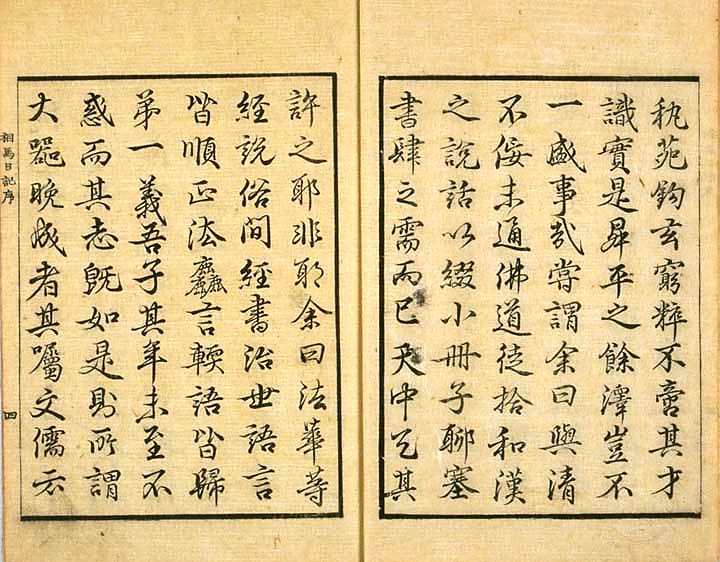 秇苑鈎玄窮粹不啻其才
識實是昇平之餘澤豈不
一盛事哉嘗謂余曰與清
不佞未通佛道徒拾和漢
之說話以綴小冊子聊塞
書肆之需而已天中乞其
許之耶非耶余曰法華等
經說俗間經書治世語言
皆順正法麤言輭語皆歸
弟一義吾子其年未至不
惑而其志既如是則所謂
大器晚成者其囑文儒云
相馬日記序
四